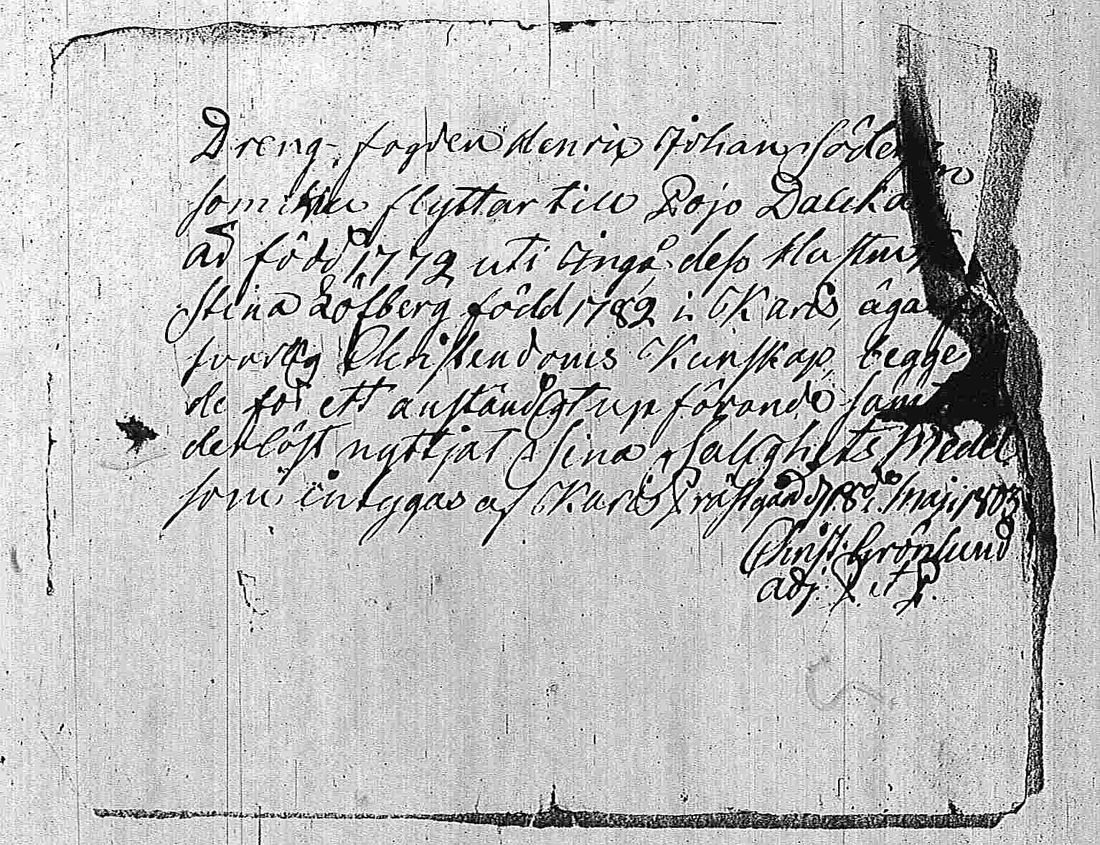 Drengfogden Henric Johan Söder
som nu flyttar till Pojo Dalcka
är född 1772 uti Ingå dess Hustru
Stina Löfberg född 1782 i Karis, äga
Christendoms Kunskap, begge
de för ett anständigt uppförande samt
nyttjat sina Salighets Medel
som intygas af Karis Prästgård d. 8de Maji 1803
Christ: Grönlund
adj. P. et P.